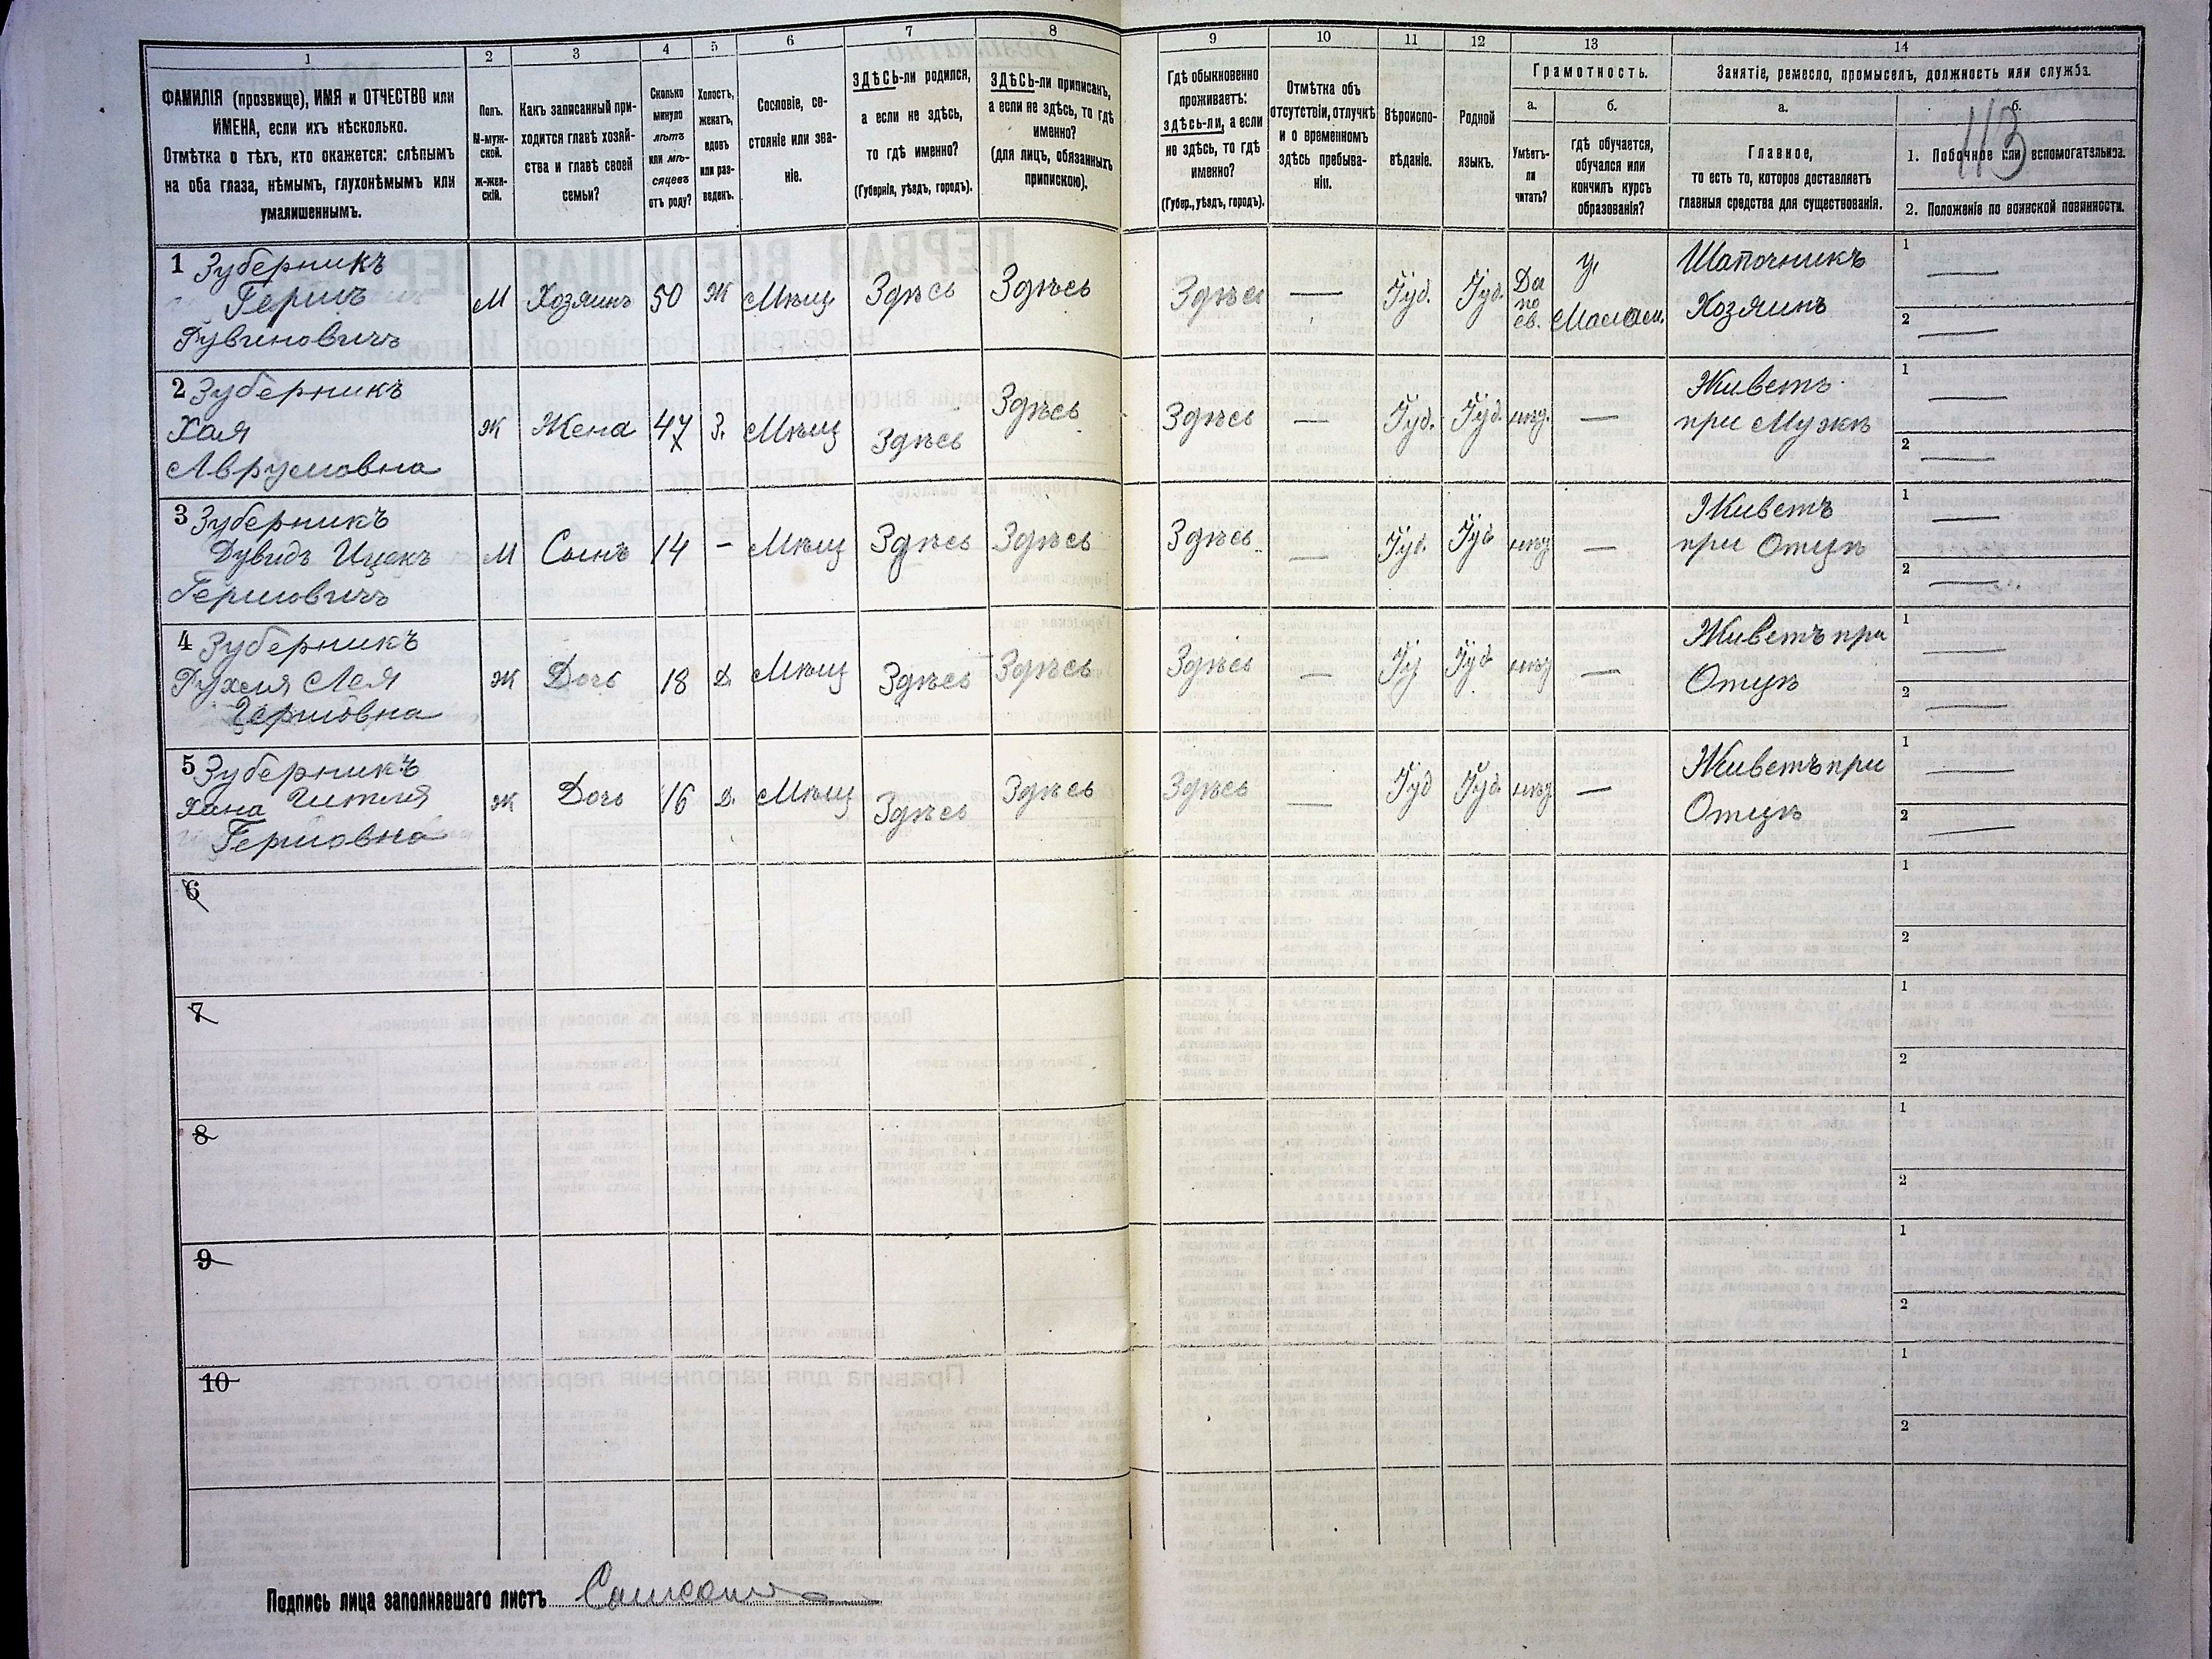 1 2 3 4 5 6 7 8 9 10 11 12 13 14
ФАМИЛІЯ (прозвище), ИМЯ и ОТЧЕСТВО или
ИМЕНА, если ихъ нѣсколько.
Отмѣтка о тѣхъ, кто окажется: слѣпымъ
на оба глаза, нѣмымъ, глухонѣмымъ или
умалишеннымъ.
Полъ.
М-муж-
ской.
Ж-жен-
скій.
Какъ записанный при-
ходится главѣ хозяй-
ства и главѣ своей
семьи?
Сколько
минуло
лѣтъ
или мѣ-
сяцевъ
отъ роду?
Холостъ,
женатъ,
вдовъ
или раз-
веденъ.
Сословіе, со-
стояніе или зва-
ніе.
ЗДѢСЬ-ли родился,
а если не здѣсь,
то гдѣ именно?
(Губернія, уѣздъ, городъ).
ЗДѢСЬ-ли приписанъ,
а если не здѣсь, то гдѣ
именно?
(для лицъ, обязанныхъ
припискою).
Гдѣ обыкновенно
проживаетъ:
здѣсь-ли, а если
не здѣсь, то гдѣ
именно?
(Губер., уѣздъ, городъ).
Отмѣтка объ
отсутствіи, отлучкѣ
и о временномъ
здѣсь пребыва-
ніи.
Вѣроиспо-
вѣданіе.
Родной
языкъ.
Грамотность.
а.
Умѣетъ-
ли
читать?
б.
гдѣ обучается,
обучался или
кончилъ курсъ
образованія?
Занятіе, ремесло, промыселъ, должность или служба.
а.
Главное,
то есть то, которое доставляетъ
главныя средства для существованія.
б.
113
1. Побочное или вспомогательное.
2. Положеніе по воинской повинности.
1 Зуберникъ
Гершъ
Рувиновичъ
М Хозяинъ 50 Ж Мѣщ Здѣсь Здѣсь Здѣсь — Іуд. Іуд.
Да
по
ев.
у
Шапочникъ
Хозяинъ
1 —
2 —
2 Зуберникъ
Хая
Аврумовна
Ж Жена 47 З. Мѣщ Здѣсь Здѣсь Здѣсь — Іуд. Іуд. —
Живетъ
при Мужѣ
1 —
2 —
3 Зуберникъ
Дувидъ Ицекъ
Гершовичъ
М Сынъ 14 – Мѣщ Здѣсь Здѣсь Здѣсь — Іуд. Іуд —
Живетъ
при Отцѣ
1 —
2 —
4 Зуберникъ
Рухля Лея
Гершовна
Ж Дочь 18 Д. Мѣщ Здѣсь Здѣсь Здѣсь — Іуд Іуд —
Живетъ при
Отцѣ
1 —
2 —
5 Зуберникъ
Хана Гитля
Гершовна
Ж Дочь 16 Д. Мѣщ Здѣсь Здѣсь Здѣсь — Іуд Іуд —
Живетъ при
Отцѣ
1 —
2 —
6
1
2
7
1
2
8
1
2
9
1
2
10
1
2
Подпись лица заполнявшаго листъ